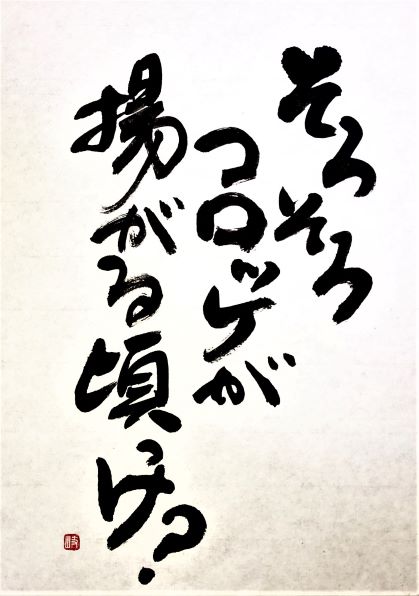 そろそろ
コロッケが
揚がる頃っけ?